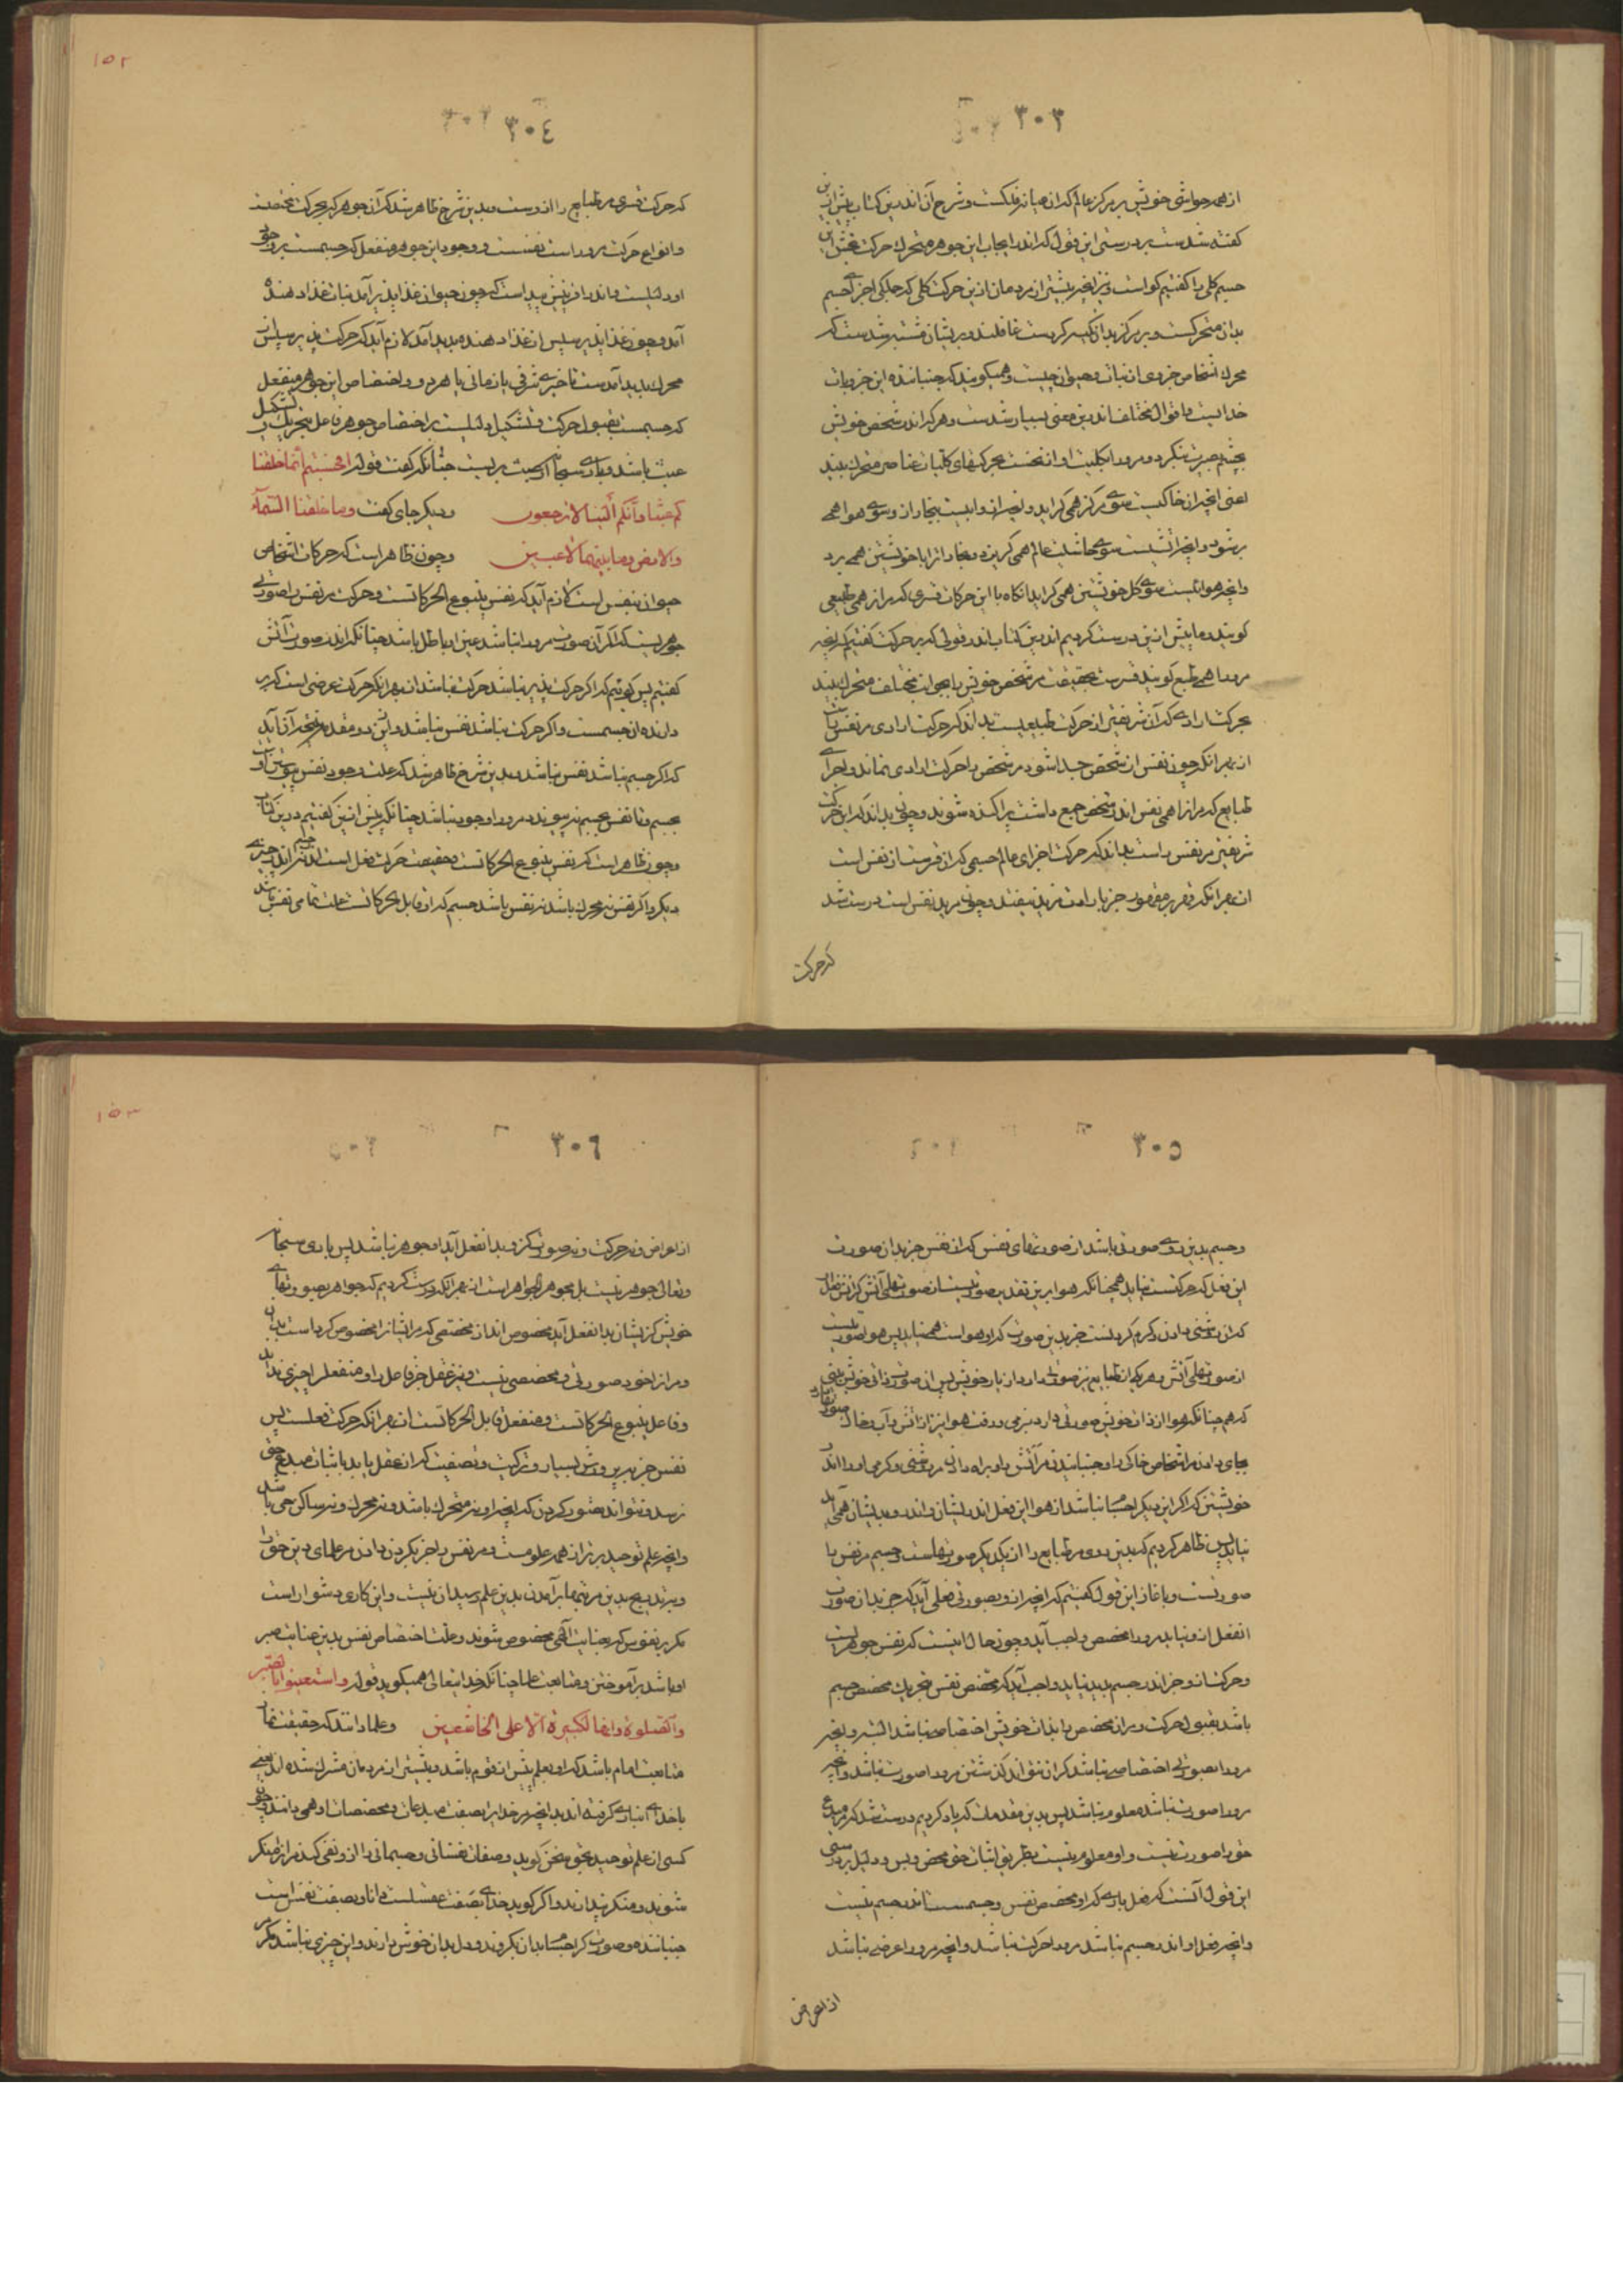 ٣٠٣
از همه حواشی خویش بر مرکز عالم که آن میانه فلکست و شرح آن اندرین کتاب پیش ازین
گفته شدست بر درستی این قول که اندر ایجاب این جوهر متحرک حرکت بخش این
جسم کلی را گفتیم گواست و نیز آنچه بیشتر از مردمان ازین حرکت کلی که جملگی اجزای جسم
بدان متحرکست و بر مرکز بدان تکیه کردست غافلند و بریشان مشتبه شدست که
محرک اشخاص جزوی از نبات و حیوان چیست و همیگویند که جنباننده این جزویات
خدایست و اقوال مختلف اندرین معنی بسیار شدست و هر که اندر شخص خویش
بچشم بصیرت بنگرد و مرورا بکلیت او از نخست بحرکتهای کلیات عناصر متحرک بیند
اعنی آنچه از خاکیست سوی مرکز همی گراید و آنچه از و آبیست بخار از و سوی هوا همی
بر شود و آنچه آتشیست سوی حاشیت عالم همی گریزد و بخار تر را با خویشتن همی برد
و آنچه هواییست سوی کل خویشتن همی گراید آنگاه با این حرکات قسری که مر آنرا همی طبیعی
گویند و ما پیش ازین درست کردیم اندرین کتاب اندر قولی که بر حرکت گفتیم که آنچه
مرورا همی طبع گویند قسرست بحقیقت مر شخص خویش را بجوانب مختلف متحرک بیند
بحرکت ارادی که آن شریفتر از حرکت طبیعیست بداند که حرکت ارادی مر نفس راست
از بهر آنکه چون نفس از شخص جدا شود مر شخص را حرکت ارادی نماند و اجزای
طبایع که مر آنرا همی نفس اندر شخص جمع داشت پراکنده شوند و چون بداند که این حرکت
شریفتر مر نفس راست بداند که حرکت اجزای عالم جسمی که آن قسرست از نفس است
از بهر آنکه قهر بر مقهور جز بارادت مرید نیفتد و چون مرید نفس است درست شد
که حرکت
٣٠٤
که حرکت قسری مر طبایع را از وست و بدین شرح ظاهر شد که آن جوهر که بحرکت مختصست
و انواع حرکت مروراست نفسست و وجود این جوهر منفعل که جسمست بر وجود
او دلیلست و اندر آفرینش پیداست که چون حیوان غذاپذیر آمد نبات غذا دهنده
آمد و چون غذاپذیر سپس از غذا دهنده پدید آمد لازم آید که حرکت پذیر سپس از
محرک پدید آمدست تاخیری شرفی یا زمانی یا هر دو و اختصاص این جوهر منفعل
که جسمست بقبول حرکت و تشکیل دلیلست بر اختصاص جوهر فاعل بتحریک و تشکیل
عبث باشد و باری سبحانه از عبث بریست چنانکه گفت قوله افحسبتم انما خلقنا
کم عبثا و انکم الینا لا ترجعون و دیگر جای گفت وما خلقنا السماء
والارض وما بینهما لاعبین و چون ظاهر است که حرکات اشخاص
حیوان بنفس است لازم آید که نفس ینبوع الحرکاتست و حرکت مر نفس را صورتی
جوهریست که اگر آن صورت مرورا نباشد عین او باطل باشد چنانکه اندر صورت آتش
گفتیم پس گوییم که اگر حرکت پذیر نباشد حرکت نباشد از بهر آنکه حرکت عرضی است که بر
دارنده آن جسمست و اگر حرکت نباشد نفس نباشد و این دو مقدمه نتیجه آن آید
که اگر جسم نباشد نفس نباشد و بدین شرح ظاهر شد که علت وجود نفس پیوستن او
بجسم و تا نفس بجسم نپیوندد مرورا وجود نباشد چنانکه پیش ازین گفتیم درین کتاب
و چون ظاهر است که نفس ینبوع الحرکاتست و بحقیقت حرکت فعل است اندر جسم نه اندر چیزی
دیگر و اگر نفس نه محرک باشد نه نفس باشد جسم که او قابل الحرکاتست علت تمامی نفس باشد
٣٠٥
و جسم بدین روی صورتی باشد از صورتهای نفس که از نفس جز بدان صورت
این فعل که حرکتست نیاید همچنانکه هوا برین تقدیر صورتیست از صورتهای آتش که آتش نتواند
که از و روشنی دادن و گرم کردنست جز بدین صورت که او هواست همی نیاید پس هوا صورتیست
از صورتهای آتش و هر یکی از طبایع نیز صورتی دارد از یار خویش پس از صورت ذاتی خویش بینی
که هم چنانکه هوا از ذات خویش صورتی دارد بنرمی و رقت هوا نیز از آتش و آب و خاک صورتها دارد
بجای دادن مر اشخاص خاکی را و جنبانیدن مر آتش را و براه دادن مر روشنی و گرمی او را اندر
خویشتن که اگر این دیگر اجسام نباشند از هوا این فعل اندر ایشان و اندر و بدیشان همی آید
نیاید پس ظاهر کردیم که بدین روی مر طبایع را از یکدیگر صورتهاست و جسم مر نفس را
صورتست و باغاز این قول گفتیم که آنچه از و بصورتی فعلی آید که جز بدان صورت
آن فعل از و نیاید مرورا مخصص واجب آید و چون حال اینست که نفس جوهریست
و حرکت از و جز اندر جسم پدید نیاید واجب آید که مخصص نفس بتحریک مخصص جسم
باشد بقبول حرکت و مر آن مخصص را بذات خویش اختصاص نباشد البته و آنچه
مرورا بصورتی اختصاص نباشد که از آن نتواند گذشتن مرورا صورت نباشد و آنچه
مرورا صورت نباشد معلوم نباشد پس بدین مقدمات که یاد کردیم درست شد که مر مبدع
حق را صورت نیست و او معلوم نیست بطریق اثبات حق محض و بس و دلیل بر درستی
این قول آنست که فعل باری که او مخصص نفس و جسمست اندر جسم نیست
و آنچه فعل او اندر جسم نباشد مرورا حرکت نباشد و آنچه مرورا عرض نباشد
از اعراض
٣٠٦
از اعراض و نه حرکت و نه صورت کزو بدان فعل آید او جوهر نباشد پس باری سبحانه
و تعالی جوهر نیست بل مجوهر الجواهر است از بهر آنکه درست کردیم که جواهر بصورتهای
خویش کزیشان بدان فعل آید مخصوص اند از مخصصی که مر ایشانرا مخصوص کرد است بدان
و مر آنرا خود صورتی و مخصصی نیست و نیز عقل جز فاعل را و منفعل را چیزی نداند
و فاعل ینبوع الحرکاتست و منفعل قابل الحرکاتست از بهر آنکه حرکت فعلست پس
نفس جز بپرورش بسیار و ترکیت و تصفیت که از عقل یابد باثبات مبدع حق
نرسد و نتواند تصور کردن که آنچه او نه متحرک باشد و نه محرک و نه ساکن چی باشد
و آنچه علم توحید برتر از همه علومست و مر نفس را جز بگردن دادن مر علمای دین حق را
و بتدریج بدین مرتبها بر آمدن بدین علم رسیدن نیست و این کاری دشوار است
مگر بر نفوس که بعنایت الهی مخصوص شوند و علت اختصاص نفس بدین عنایت صبر
او باشد بر آموختن و متابعت علما چنانکه خدایتعالی همیگوید قوله واستعینوا بالصبر
والصلوة وانها لکبیرة الا علی الخاشعین و علما دانند که حقیقت نماز
متابعت امام باشد که او بعلم پیش از قوم باشد و بیشتر از مردمان مشرک شده اند
با خدای انباز گرفته اند بدانچه مر خدا را بصفت مبدعان و مخصصات او همی دانند و چون
کسی از علم توحید بحق سخن گوید و صفات نفسانی و جسمانی را از و نفی کند مر آنرا منکر
شوند و منکر پندارند و اگر گوید خدای بصفت عقلست دانا و بصفت نفس است
جنباننده و صورت گر اجسام بدان بگروند و دل بدان خوش دارند و این چیزی نباشد مگر